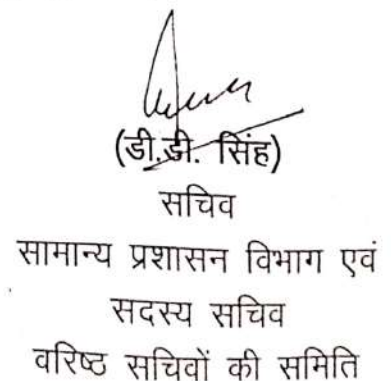 (डी.डी. सिंह)
सचिव
सामान्य प्रशासन विभाग एवं
सदस्य सचिव
वरिष्ठ सचिवों की समिति